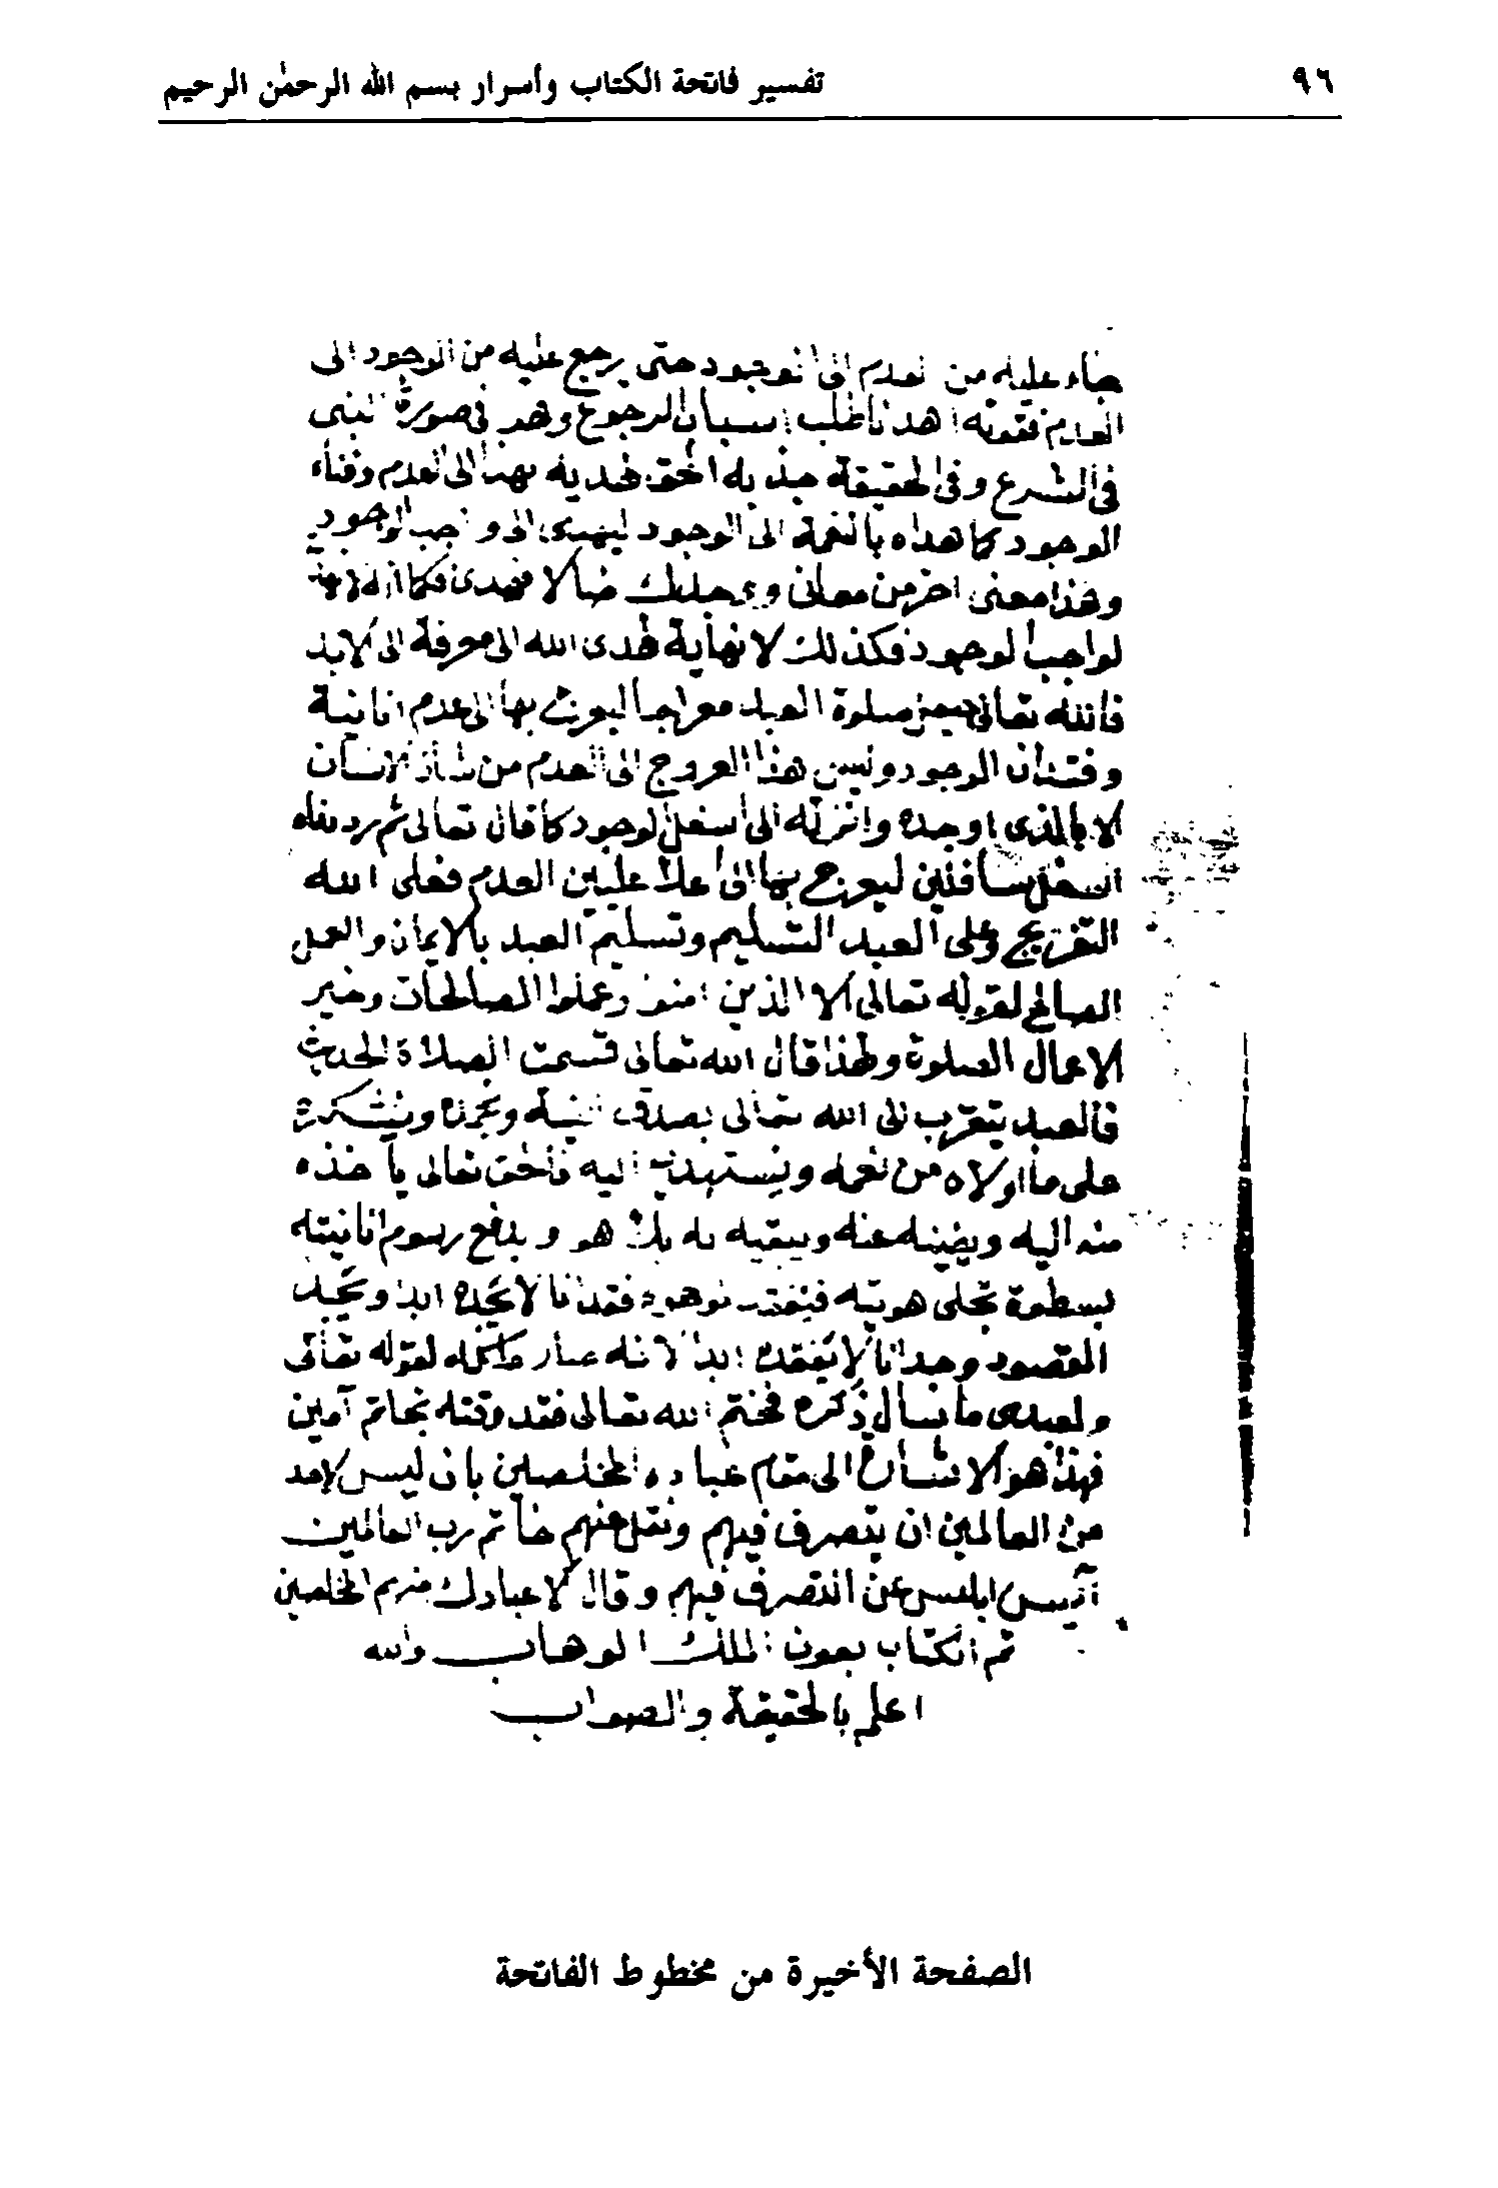 ٩٦
تفسير فاتحة الكتاب وأسرار بسم الله الرحمٰن الرحيم
جاء عليه من العدم الى الوجود حتى يرجع عليه من الوجود الى
العدم فقوله اهدنا طلب اسباب الرجوع وهو فى صورة النبى
فى الشرع وفى الحقيقة جذبه الحق يهدينا الى العدم وفناء
الوجود كما هداه بالنعمة الى الوجود ليهتدى الى واجب الوجود
وهذا معنى اخر من معانى ووجدك ضالا فهدى فكما انه لا
لواجب الوجود فكذلك لا نهاية لهدى الله الى معرفة الى الابد
فالله تعالى صلوة العبد معراجا ليعرج بها الى عدم انانية
وفقدان الوجود وليس هذا العروج الى العدم من شان الانسان
الا بالذى اوجده وانزله الى اسفل الوجود كما قال تعالى ثم رددناه
اسفل سافلين ليعرج بها الى اعلا عليين العدم فعلى الله
وعلى العبد التسليم وتسليم العبد بالايمان والعمل
الصالح لقوله تعالى الا الذين امنوا وعملوا الصالحات وخير
الاعمال الصلوة ولهذا قال الله تعالى قسمت الصلاة الحديث
فالعبد يتقرب الى الله تعالى بصدق النية ويشكره
على ما اولاه من نعمه ويستهديه اليه فالحق تعالى ياخذه
منه اليه ويفنيه عنه ويبقيه به بلا هو ويدفع رسوم انانيته
بسطوة تجلى هويته فيفقد الوجود فقدانا لا يجده ابدا ويجد
المقصود وجدانا لا يفقده ابدا لانه لقوله تعالى
ولعبدى ما سال ذكره فختم الله تعالى بخاتم آمين
فهذا هو الاشارة الى مقام عباده المخلصين بان ليس لاحد
من العالمين ان يتصرف فيهم خاتم رب العالمين
آيس ابليس عن التصرف فيهم وقال الا عبادك منهم المخلصين
تم الكتاب بعون الملك الوهاب والله
اعلم بالحقيقة والصواب
الصفحة الأخيرة من مخطوط الفاتحة